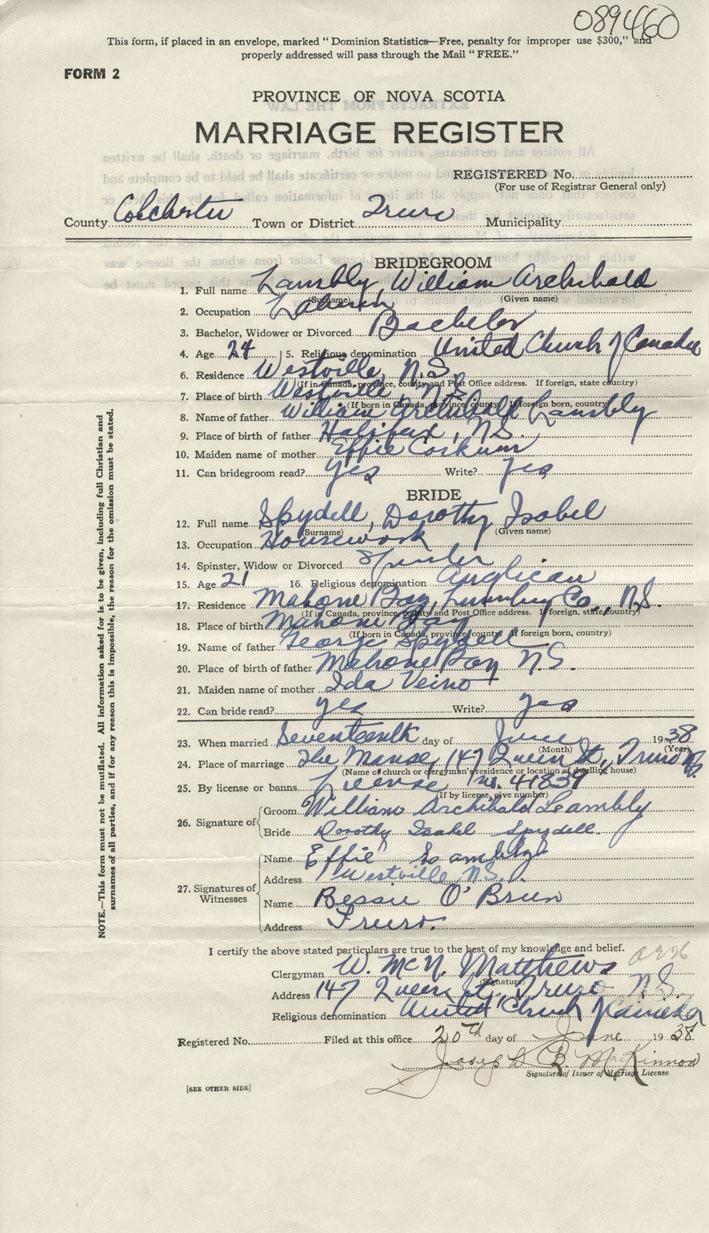 089460
This form, if placed in an envelope, marked "Dominion Statistics—Free, penalty for improper use $300," and
properly addressed will pass through the Mail "FREE."
FORM 2
PROVINCE OF NOVA SCOTIA
MARRIAGE REGISTER
REGISTERED No.
(For use of Registrar General only)
County Colchester Town or District Truro Municipality
BRIDEGROOM
1. Full name Lambly, William Archibald
(Surname) (Given name)
2. Occupation Laborer
3. Bachelor, Widower or Divorced Bachelor
4. Age 24 5. Religious denomination United Church of Canada
6. Residence Westville, N.S.
(If in Canada, province, county and Post Office address. If foreign, state country)
7. Place of birth Westville, N.S.
(If born in Canada, province, county. If foreign born, country)
8. Name of father William Archibald Lambly
9. Place of father Halifax, N.S.
10. Maiden name of mother Effie Corkum
11. Can bridegroom read? yes Write? yes
BRIDE
12. Full name Spydell, Dorothy Isabel
(Surname) (Given name)
13. Occupation Housework
14. Spinster, Widow or Divorced Spinster
15. Age 21 16. Religious denomination Anglican
17. Residence Mahone Bay, Lunenburg Co., N.S.
(If in Canada, province, county and Post Office address. If foreign, state country)
18. Place of birth Mahone Bay
(If born in Canada, province, county. If foreign born, country)
19. Name of father George Spydell
20. Place of birth of father Mahone Bay N.S.
21. Maiden name of mother Ida Veino
22. Can bride read? yes Write? yes
23. When married Seventeenth day of June 1938
(Month) (Year)
24. Place of marriage The Manse, 147 Queen St., Truro N.S.
(Name of church or clergyman's residence or location of dwelling house)
25. By license or banns License no. 41839
(If by license, give number)
26. Signature of Groom William Archibald Leambly
Bride Dorothy Isabel Spydell
27. Signatures of Witnesses Name Effie Lambly
Address Westville, N.S.
Name Bessie O'Brien
Address Truro.
NOTE.—This form must not be mutilated. All information asked for is to be given, including full Christian and
surnames of all parties, and if for any reason this is impossible, the reason for the omission must be stated.
I certify the above stated particulars are true to the best of my knowledge and belief.
Clergyman W. McN. Matthews
(Signature)
Address 147 Queen St., Truro N.S.
Religious denomination United Church of Canada
Registered No. Filed at this office 20th day of June 1938
Joseph B. McKinnon
Signature of Issuer of Marriage License.
[SEE OTHER SIDE]